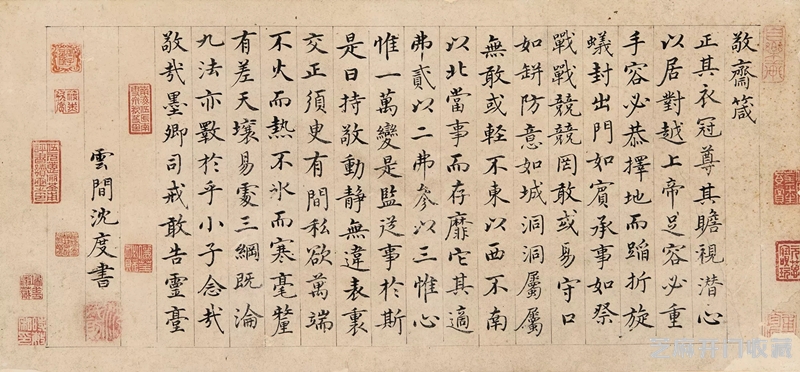 敬齋箴
正其衣冠尊其瞻視潛心
以居對越上帝足容必重
手容必恭擇地而蹈折旋
蟻封出門如賓承事如祭
戰戰兢兢罔敢或易守口
如缾防意如城洞洞屬屬
無敢或輕不東以西不南
以北當事而存靡它其適
弗貳以二弗參以三惟心
惟一萬變是監從事於斯
是曰持敬動靜無違表裏
交正須臾有間私欲萬端
不火而熱不氷而寒毫釐
有差天壤易處三綱既淪
九法亦斁於乎小子念哉
敬哉墨卿司戒敢告靈臺
雲間沈度書
芝麻开门收藏